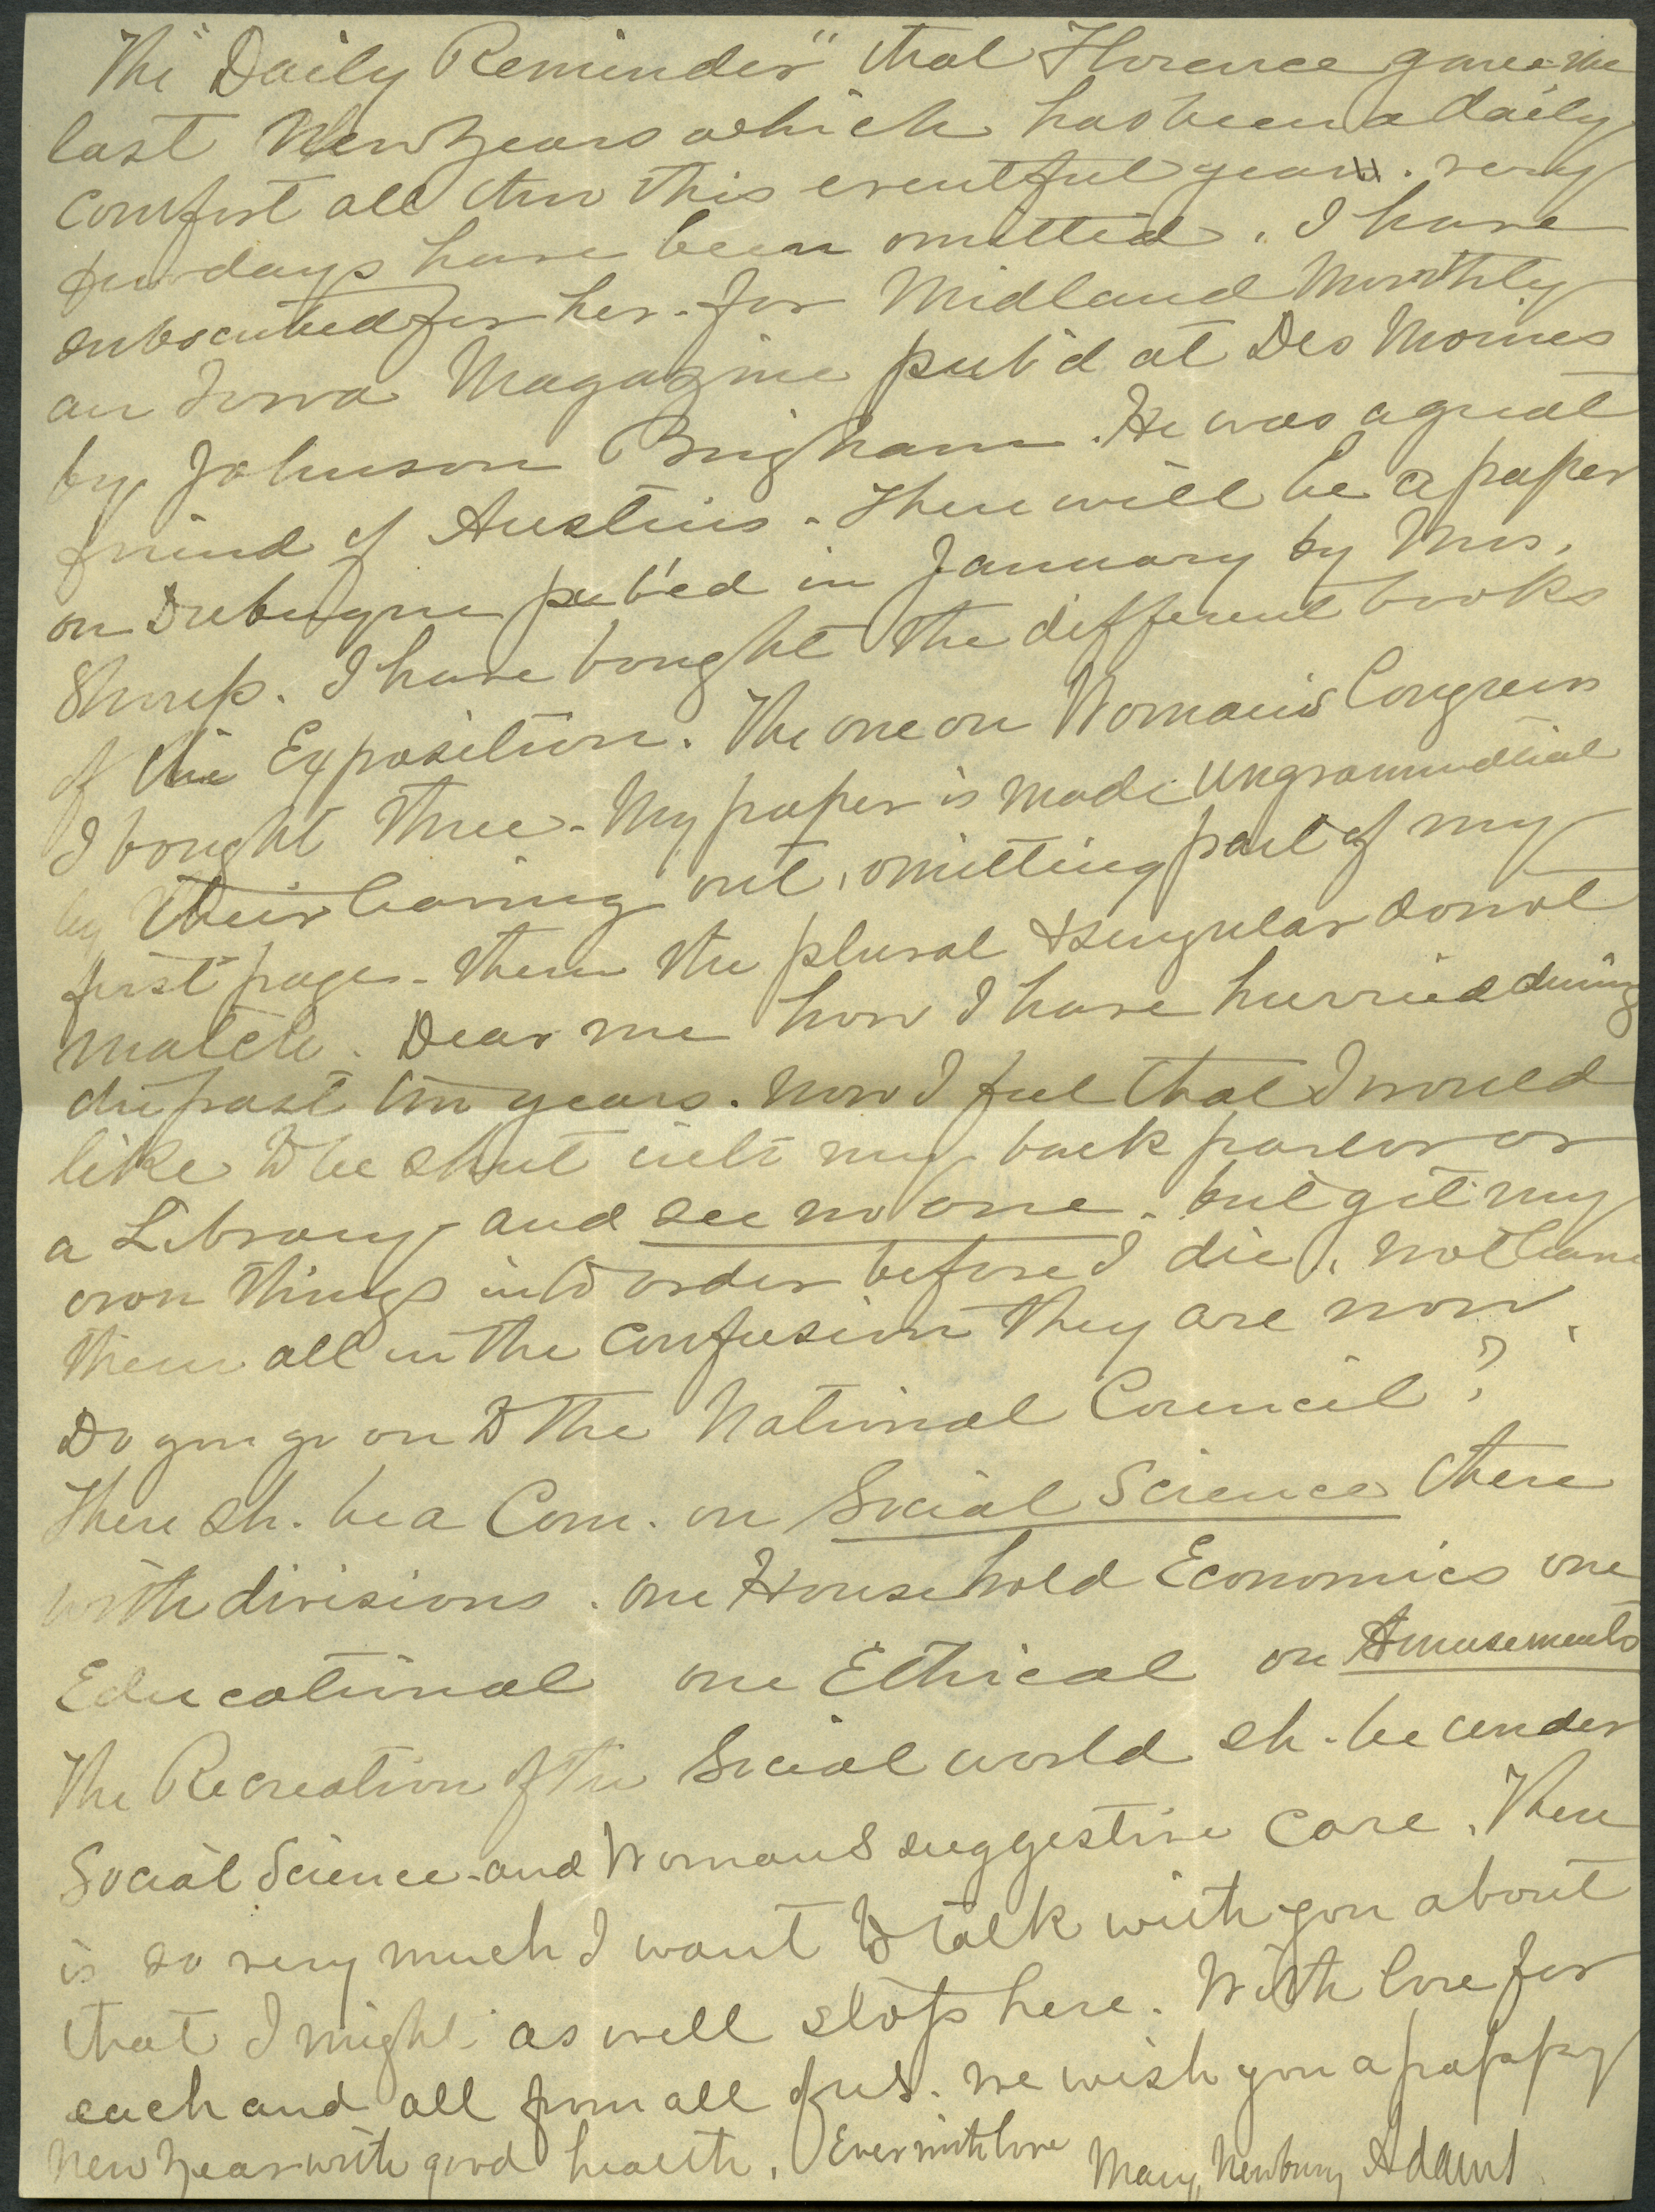 The "Daily Reminder" that Florence gave me
last New Years which has been a daily
comfort all thro this eventful year. very
few days have been omitted. I have
subscribed for her - for Midland Monthly
an Iowa Magazine pub'd at Des Moines
by Johnson Brigham. He was a great
friend of Austins. There will be a paper
on Dubuque pub'ed in January by Mrs.
Shoup. I have bought the different books
of the Exposition. The one on Woman's Congress
I bought three - My paper is made ungrammatical
by their leaving out, omitting part of my
first page - then the plural & singular do not
match. Dear me how I have hurried during
the past ten years. Now I feel that I would
like to be shut into my back parlor or
a Library and see no one. but get my
own things into order before I die, not leave
them all in the confusion they are now.
Do you go on to the National Council?
There sh. be a Com. on Social Science there
with divisions. one Household Economics one
Educational one Ethical on Amusements
The Recreation of the Social world sh. be under
Social Science and Womans suggestive care. There
is so very much I want to talk with you about
that I might as well stop here. With love for
each and all from all of us. We wish you a happy
New Year with good health. Ever with love Mary Newbury Adams